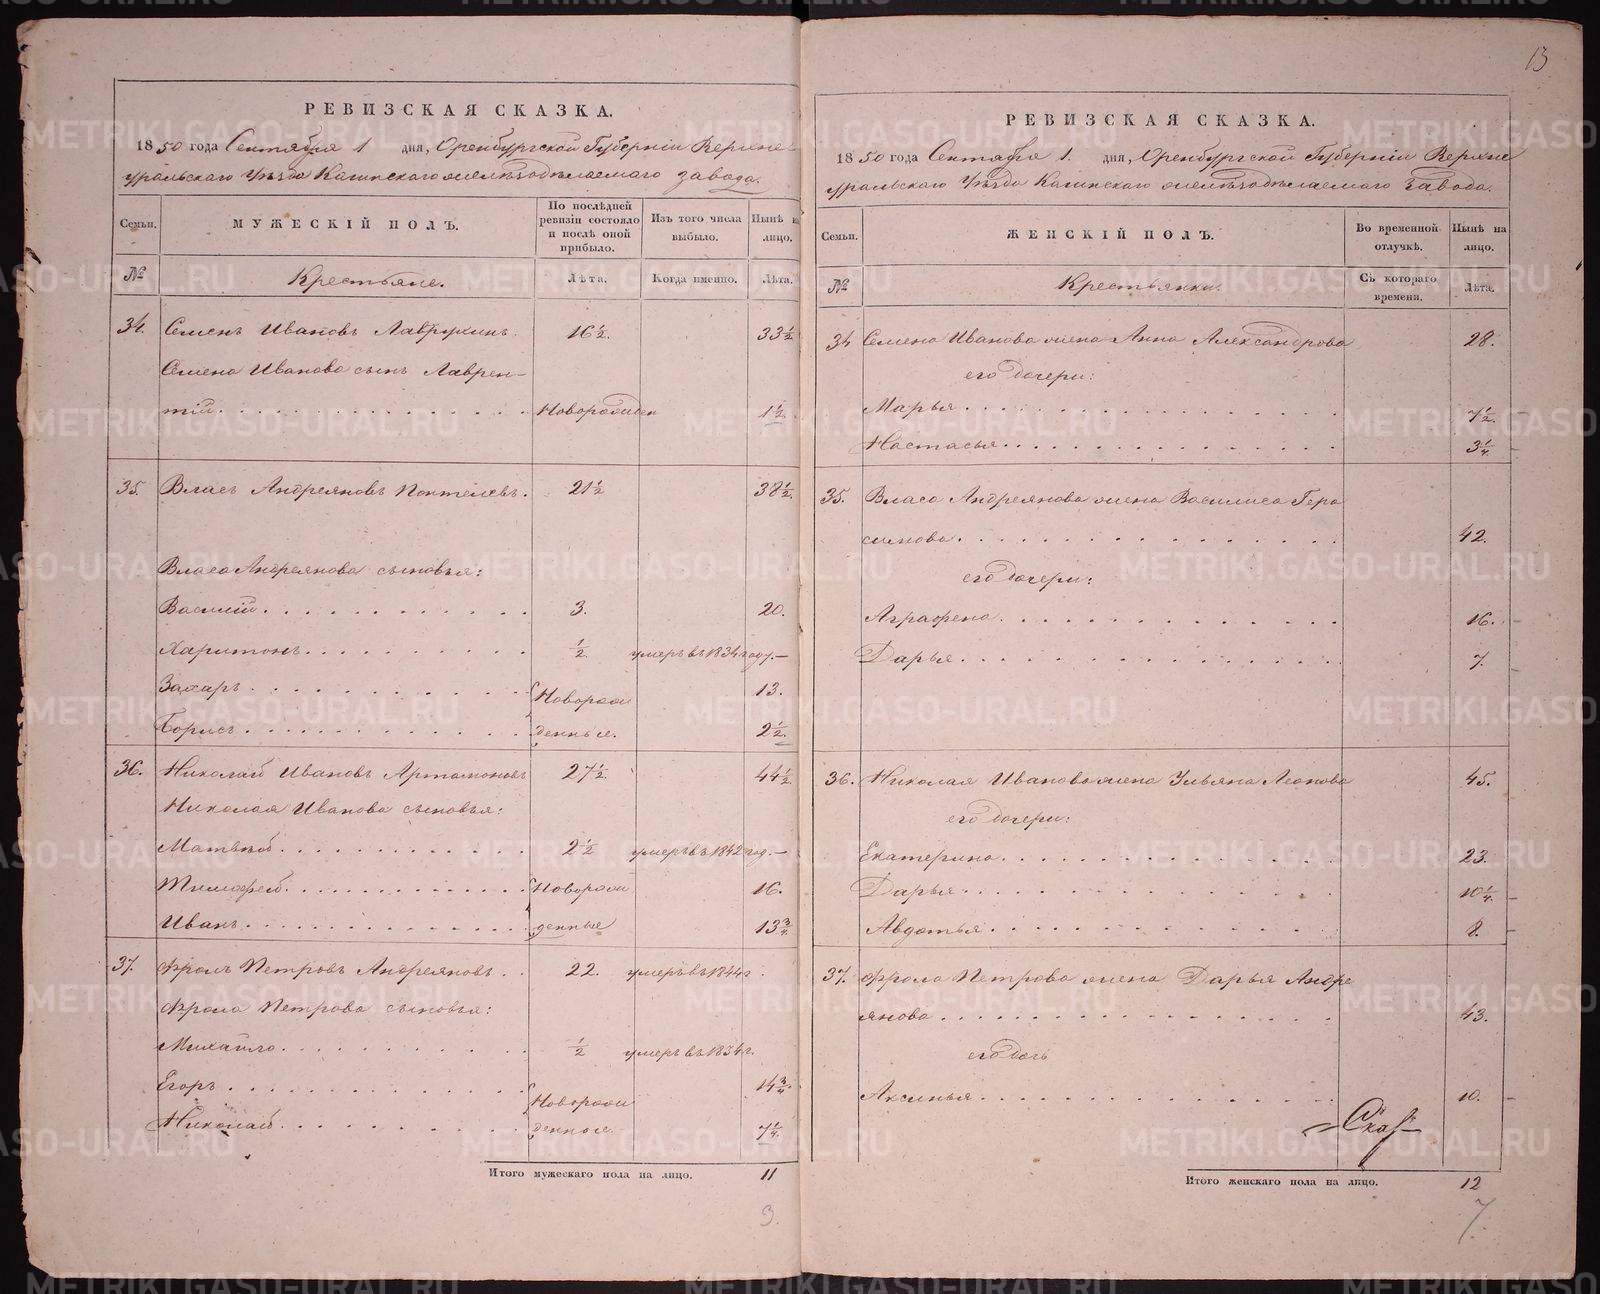 13
РЕВИЗСКАЯ СКАЗКА.
1850 года Сентября 1 дня, Оренбургской Губерніи Верхне-
уральскаго Уѣзда Кагинскаго желѣзодѣлаемаго завода.
Семьи.
МУЖЕСКІЙ ПОЛЪ.
По послѣдней ревизіи состояло и послѣ оной прибыло.
Изъ того числа выбыло.
Нынѣ на лицо.
№
Крестьяне.
Лѣта.
Когда именно.
Лѣта.
34. Семенъ Ивановъ Лаврухинъ. 16 1/2. 33 1/2
Семена Иванова сынъ Лаврен-
тій. Новорожден 1 1/2.
35. Власъ Андреяновъ Пантелеевъ. 21 1/2 38 1/2.
Власа Андреянова сыновья:
Василій. 3. 20.
Харитонъ. 1/2. умеръ въ 1834 году.—
Захаръ. Новорож 13.
Борисъ. денные. 2 1/2.
36. Николай Ивановъ Артамоновъ 27 1/2. 44 1/2
Николая Иванова сыновья:
Матвѣй. 2 1/2 умеръ въ 1842 год.—
Тимофей. Новорож 16.
Иванъ. денные 13 3/4.
37. Фролъ Петровъ Андреяновъ. 22. умеръ въ 1844 г.
Фрола Петрова сыновья:
Михайло. 1/2 умеръ въ 1834 г.
Егоръ. Новорож 14 3/4.
Николай. денные. 7 1/4.
Итого мужескаго пола на лицо. 11
9.
РЕВИЗСКАЯ СКАЗКА.
1850 года Сентября 1. дня, Оренбургской Губерніи Верхне
уральскаго Уѣзда Кагинскаго желѣзодѣлаемаго Завода.
Семьи.
ЖЕНСКІЙ ПОЛЪ.
Во временной отлучкѣ.
Нынѣ на лицо.
№
Крестьянки.
Съ котораго времени.
Лѣта.
34 Семена Иванова жена Анна Александрова 28.
его дочери:
Марья. 7 1/2.
Настасья. 3 1/4.
35. Власа Андреянова жена Василиса Гера
симова. 42.
его дочери:
Аграфена. 16.
Дарья. 7.
36. Николая Иванова жена Ульяна Леонова 45.
его дочери:
Екатерина. 23.
Дарья. 10 1/4.
Авдотья. 8.
37. Фрола Петрова жена Дарья Андре
янова. 43.
его дочь
Аксинья. 10.
Итого женскаго пола на лицо. 12
7.
METRIKI.GASO-URAL.RU